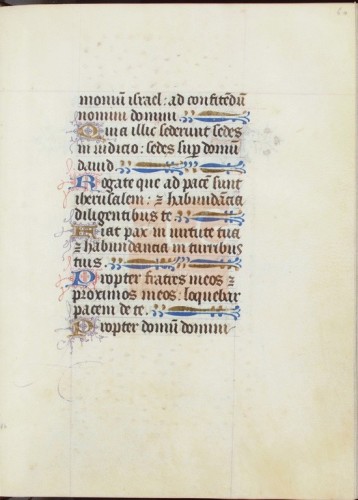 moniū israel: ad confitedū
nomini domini.
Quia illic sederunt sedes
in iudicio: sedes sup domū
dauid.
Rogate que ad pacē sunt
iherusalem: ⁊ habundācia
diligentibus te.
Fiat pax in uirtute tua
⁊ habundancia in turribus
tuis.
Propter fratres meos ⁊
proximos meos: loquebar
pacem de te.
Propter domū domini